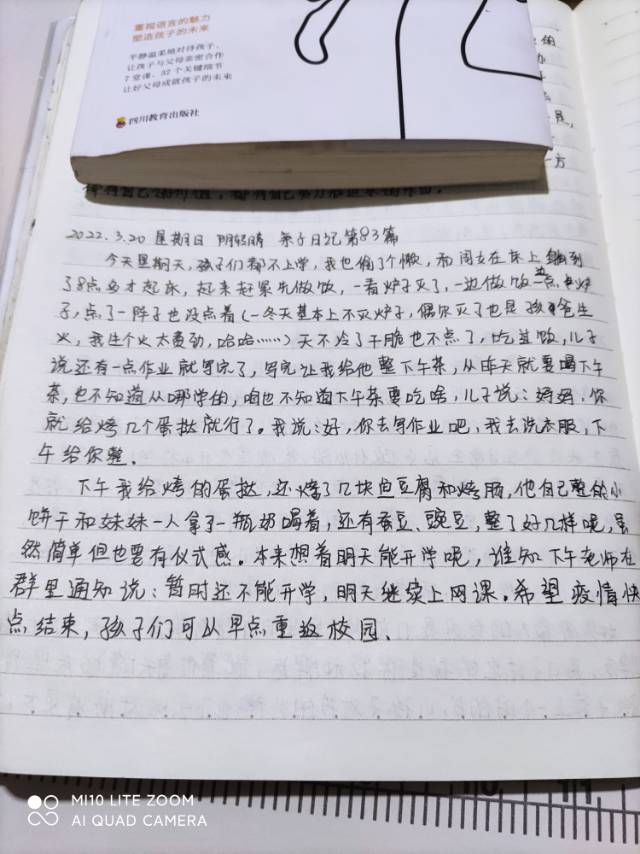 重视语言的魅力
塑造孩子的未来
平静温柔地对待孩子,
让孩子与父母亲密合作
7堂课、32个关键细节
让好父母成就孩子的未来
四川教育出版社
2022.3.20 星期日 阴转晴 亲子日记第83篇
今天星期天,孩子们都不上学,我也偷了个懒,和闺女在床上躺到
了8点多才起床,起来赶紧先做饭,一看炉子灭了,一边做饭一边点炉
子,点了一阵子也没点着(一冬天基本上不灭炉子,偶尔灭了也是孩爸生
火,我生个火太费劲,哈哈……)天不冷了干脆也不点了,吃过饭,儿子
说还有一点作业就写完了,写完让我给他整下午茶,从昨天就要喝下午
茶,也不知道从哪学的,咱也不知道下午茶要吃啥,儿子说:妈妈,你
就给烤几个蛋挞就行了。我说:好,你去写作业吧,我去洗衣服,下
午给你整.
下午我给烤的蛋挞,还烤了几块鱼豆腐和烤肠,他自己整的小
饼干和妹妹一人拿了一瓶奶喝着,还有蚕豆、豌豆,整了好几样呢,虽
然简单但也要有仪式感。本来想着明天能开学呢,谁知下午老师在
群里通知说:暂时还不能开学,明天继续上网课.希望疫情快
点结束,孩子们可以早点重返校园.
MI10 LITE ZOOM
AI QUAD CAMERA